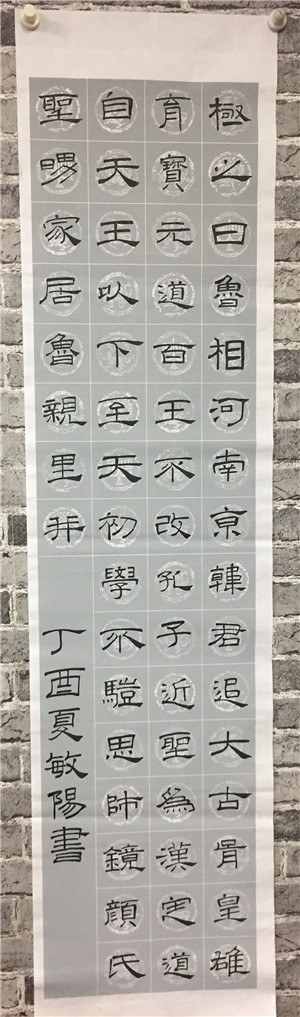 極之日魯相河南京韓君追大古胥皇雄
育寶元道百王不改孔子近聖爲漢定道
自天王以下至天初學不𩥉思師鏡顏氏
聖舅家居魯親里并
丁酉夏敏陽書